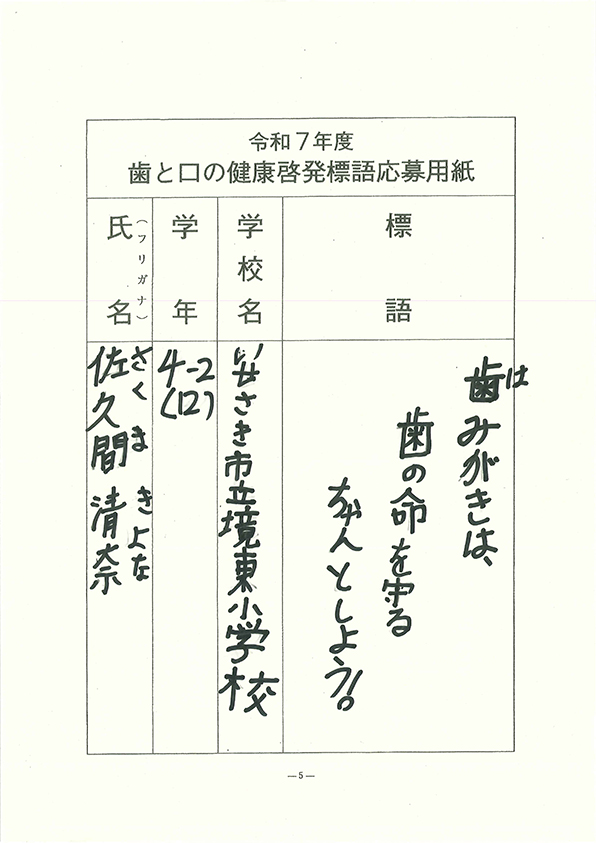 令和7年度
歯と口の健康啓発標語応募用紙
標語
歯みがきは、
は
歯の命を守る
ちゃんとしよう!。
学校名
いせさき市立境東小学校
学年
4-2
(12)
氏名
(フリガナ)
さくま きよな
佐久間 清奈
—5—